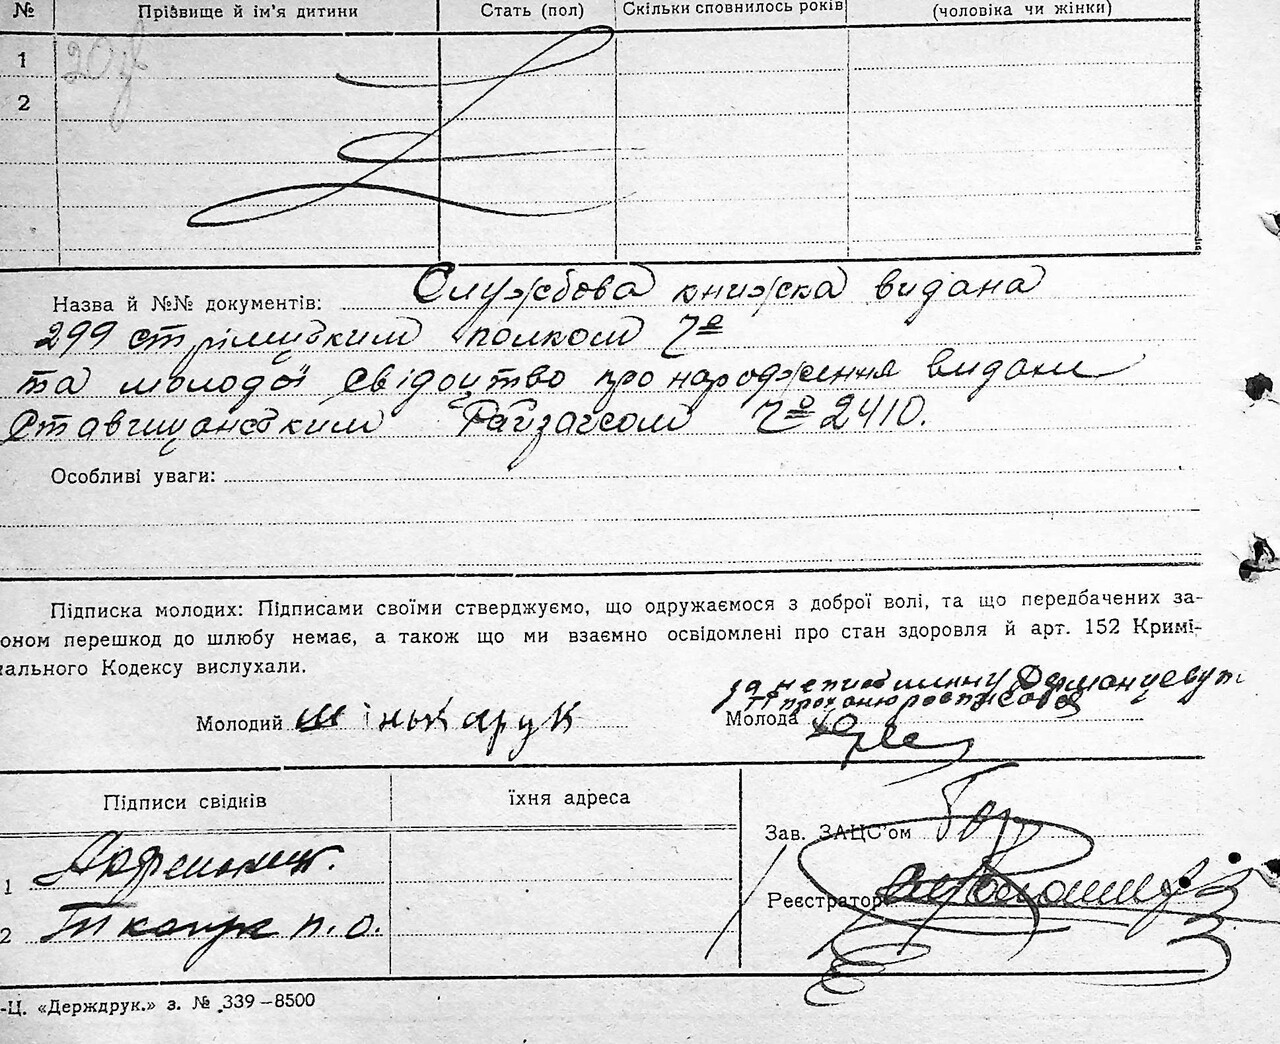 № Прізвище й ім'я дитини Стать (пол) Скільки сповнилось років (чоловіка чи жінки)
1
2
Назва й №№ документів: Службова книжка видана
299 стрілецьким полком №
та молодої свідоцтво про народження видане
Ставищанським Райзагсом № 2410.
Особливі уваги:
Підписка молодих: Підписами своїми стверджуємо, що одружаємося з доброї волі, та що передбачених за-
оном перешкод до шлюбу немає, а також що ми взаємно освідомлені про стан здоровля й арт. 152 Кримі-
нального Кодексу вислухали.
за неписьменну
Молодий Шінькарук Молода
Підписи свідків їхня адреса
Зав. ЗАЦС'ом
1
Реєстратор
2 Ткачук П.О.
-Ц. «Держдрук.» з. № 339–8500